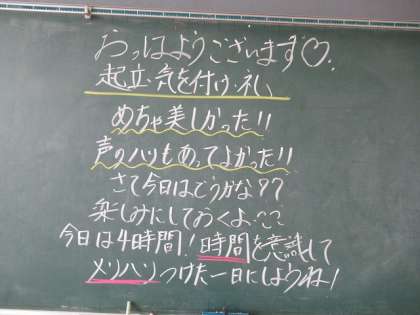 おっはようございます♡!
起立・気を付け・礼、
めちゃ美しかった!!
声のハリもあってよかった!!
さて今日はどうかな??
楽しみにしておくよ^^
今日は4時間!時間を意識して
メリハリつけた一日にしようね!